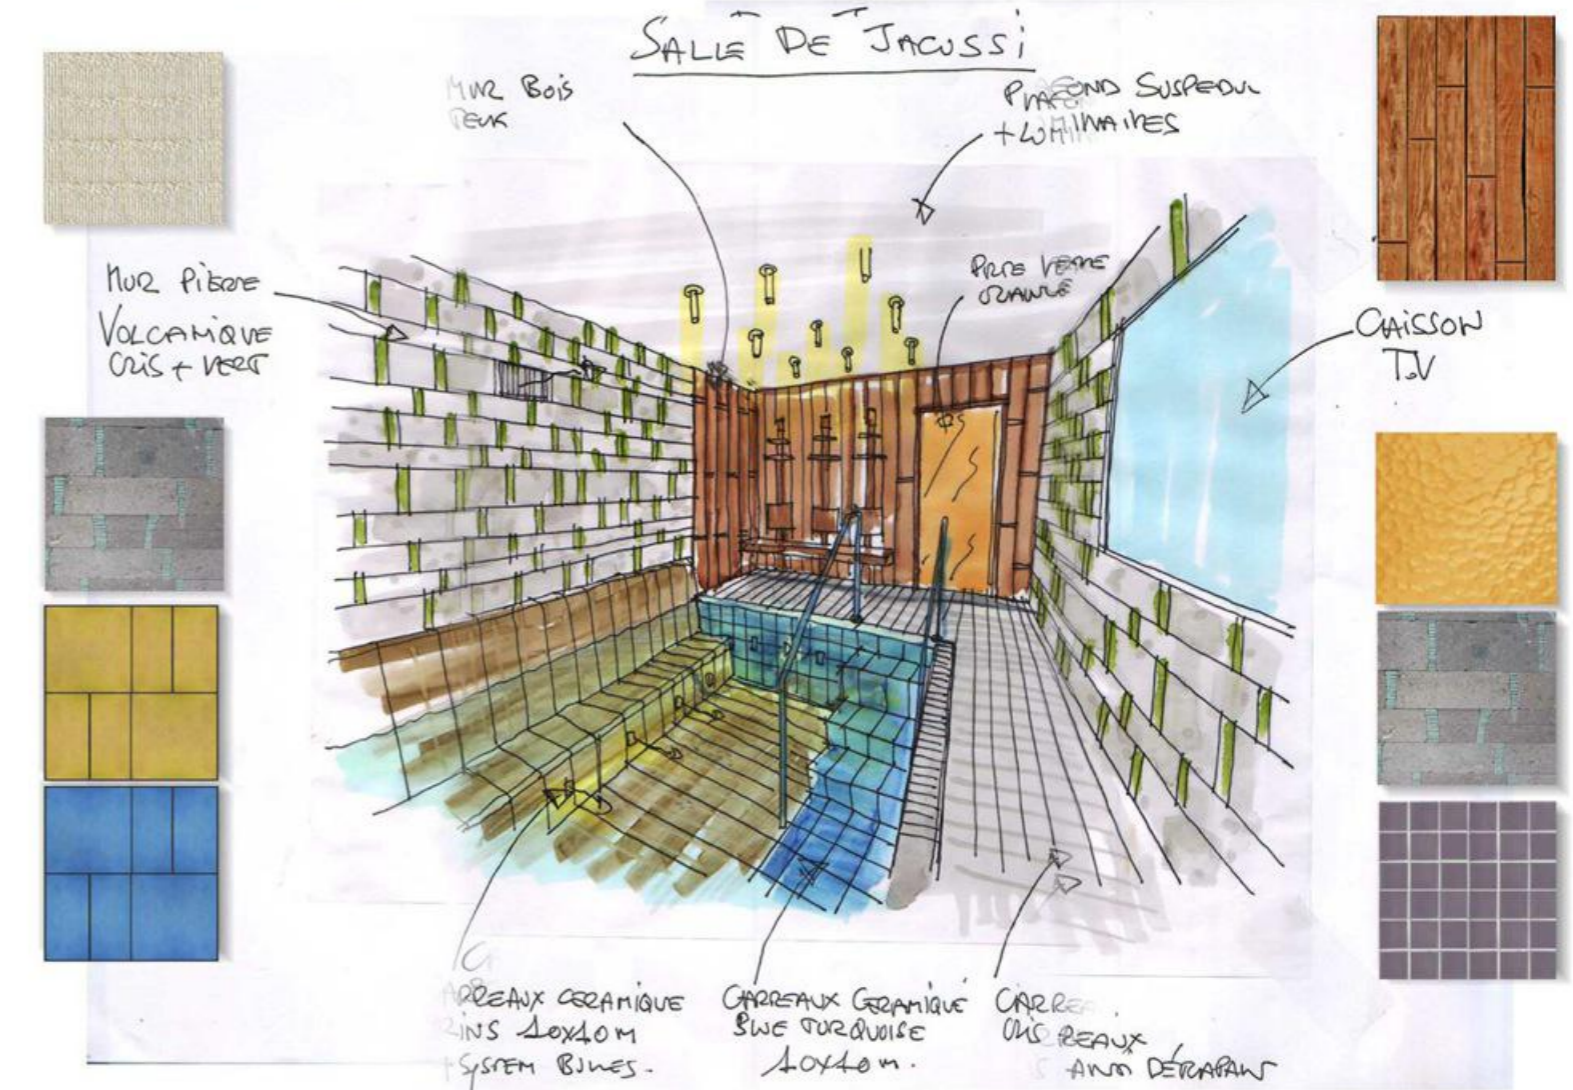 SALLE DE JACUSSI
MUR BOIS
TECK
PLAFOND SUSPEDU
+ LUMINAIRES
MUR PIERRE
VOLCANIQUE
GRIS + VERT
PRTE VERRE
ORANGE
CAISSON
T.V
CARREAUX CERAMIQUE
10X10 M
SYSTEM BULLES.
CARREAUX CERAMIQUE
BLUE TURQUOISE
10X10 M.
CARREAUX
GRIS
ANTI DÉRAPANT